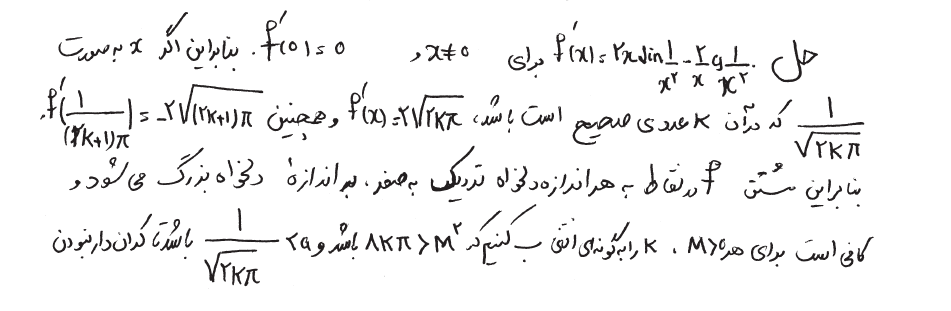 حل. f'(x) = ۲x sin 1/x^۲ - ۲/x cos 1/x^۲ برای x ≠ 0 و f'(0) = 0. بنابراین اگر x به صورت
1/√۲Kπ که در آن K عددی صحیح است باشد، f'(x) = -۲√۲Kπ و همچنین f'(1/(۲K+1)π) = -۲√(۲K+1)π.
بنابراین مشتق f در نقاط به هر اندازه دلخواه نزدیک به صفر، به اندازهٔ دلخواه بزرگ می شود و
کافی است برای هر M>0، K را به گونه ای انتخاب کنیم که ۸Kπ > M^۲ باشد و 1/√۲Kπ < a باشد تا کران دار نبودن